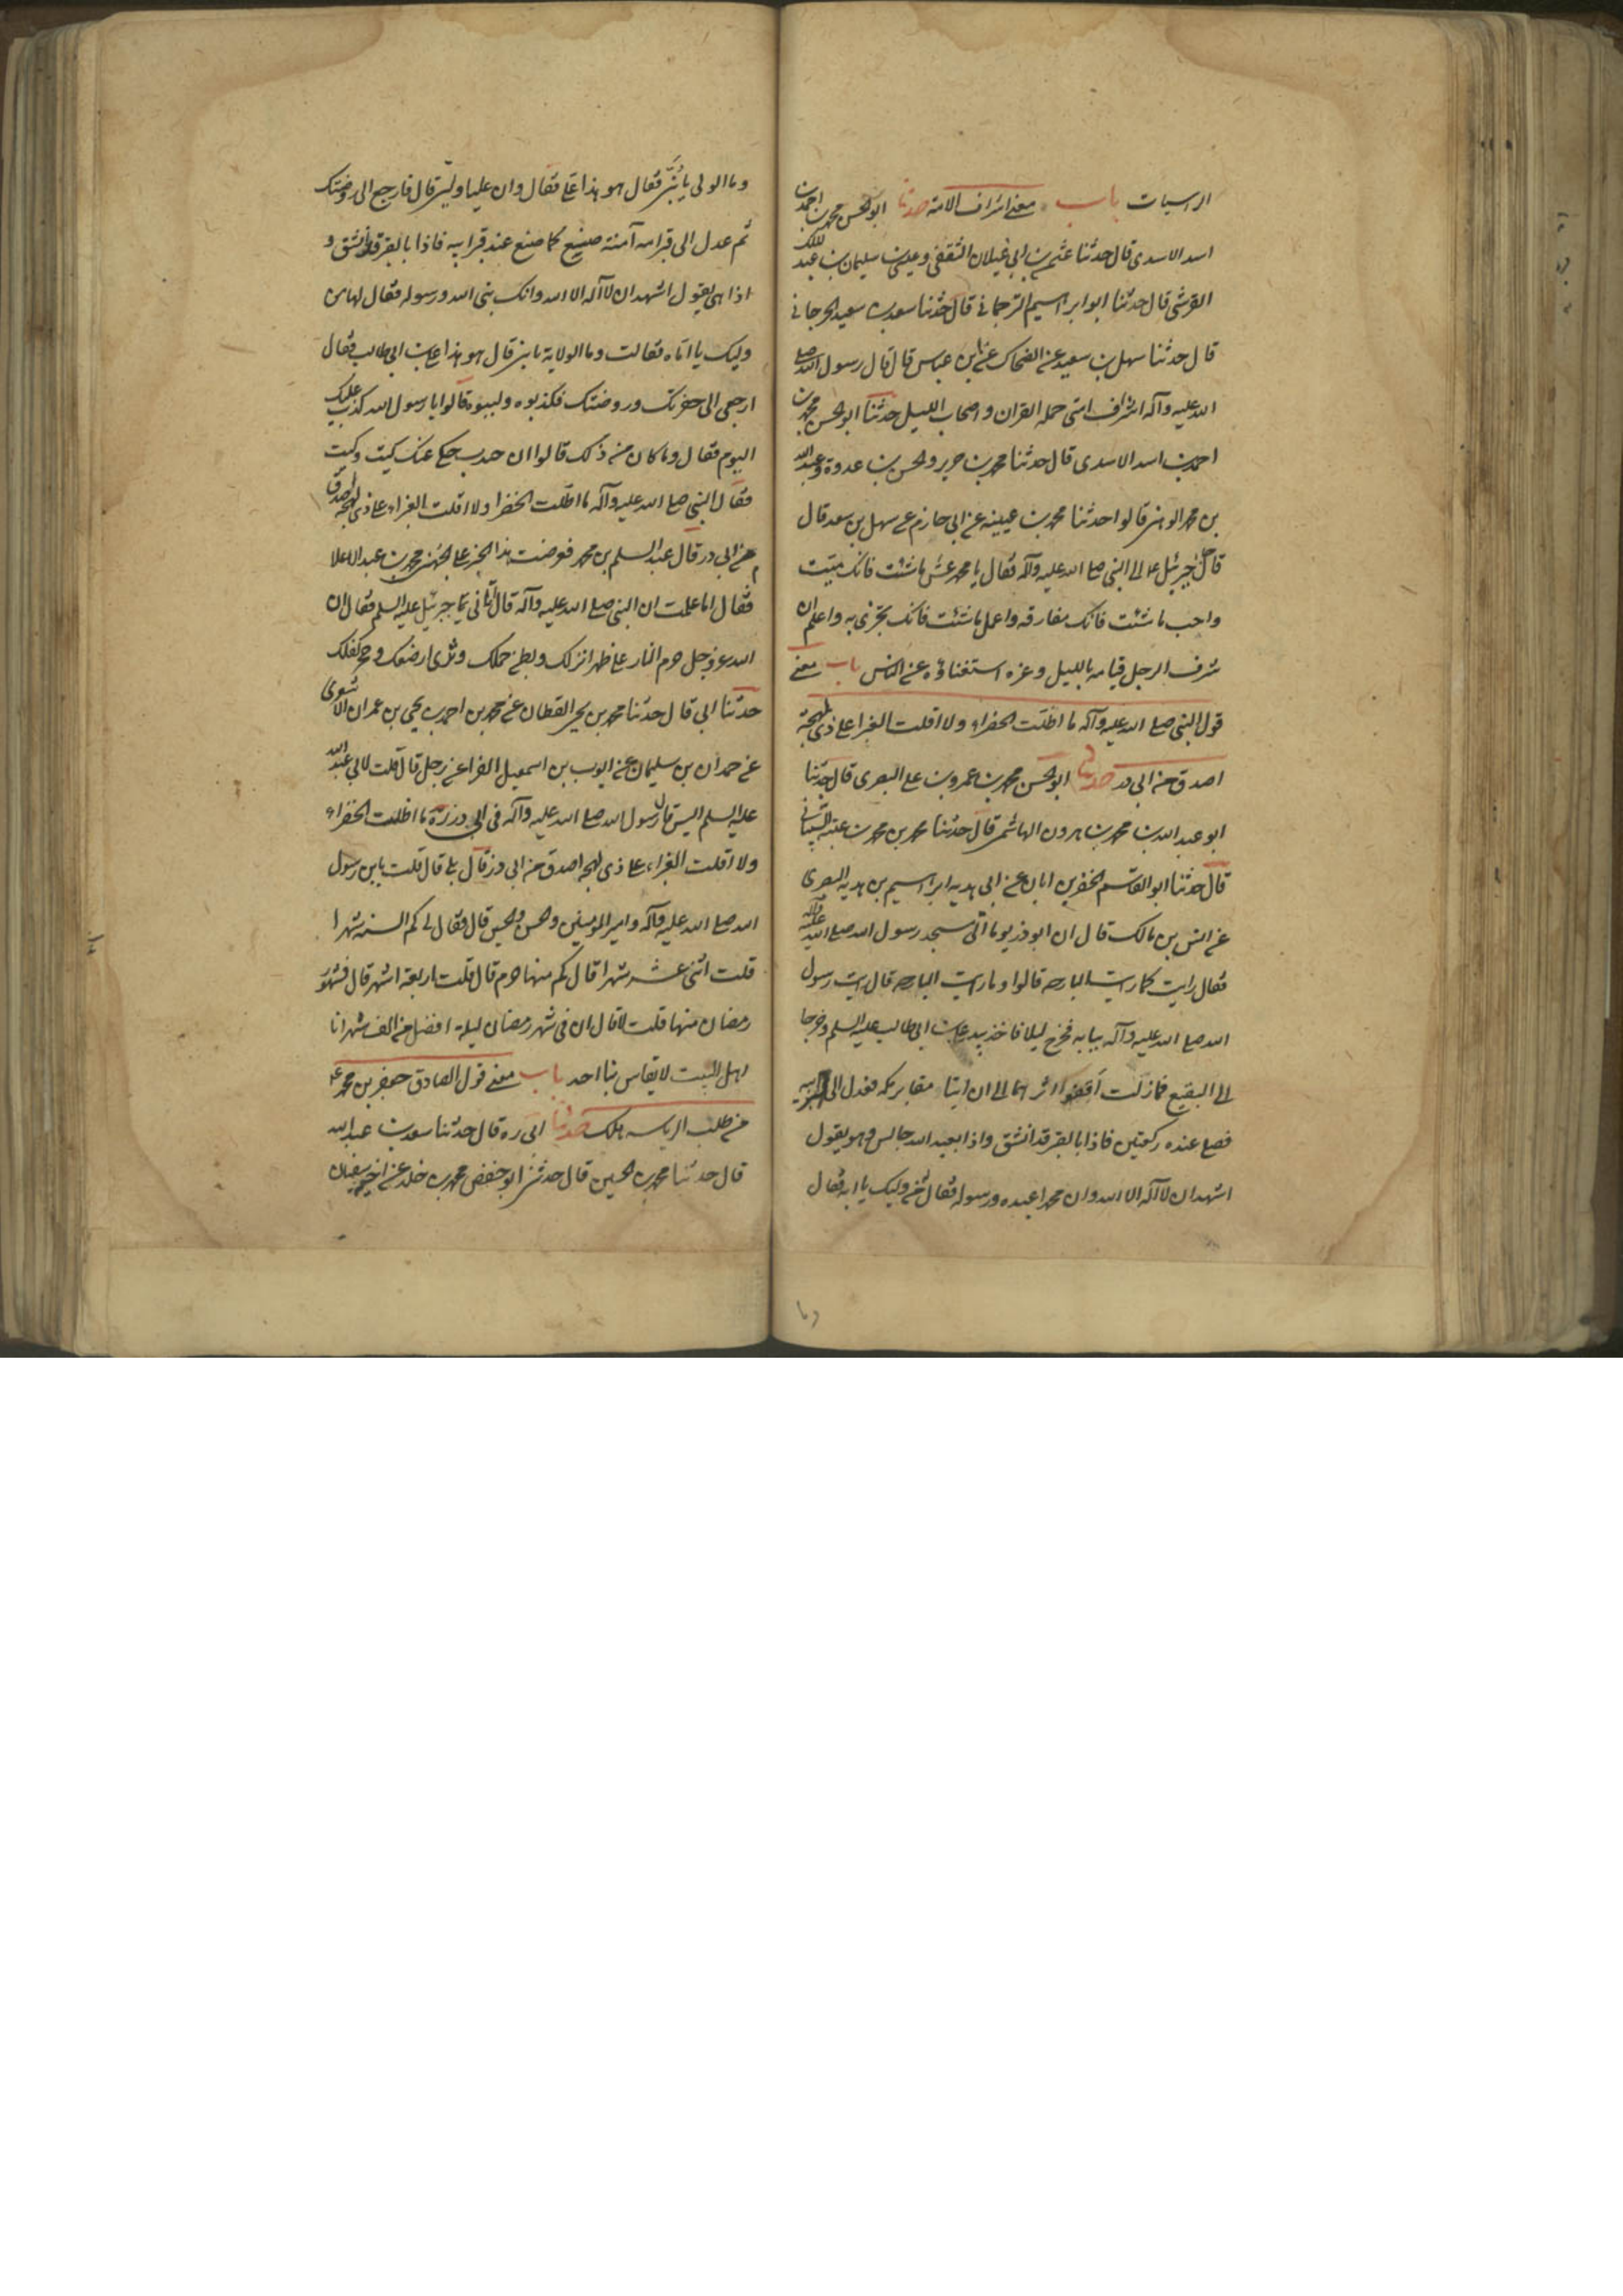 الراسيات باب معنى اشراف الامة حدثنا ابو الحسن محمد بن احمد بن
اسد الاسدى قال حدثنا عثمن بن ابى غيلان الثقفى وعيسى بن سليمان بن عبد الملك
القرشى قال حدثنا ابو ابراهيم الترجمانى قال حدثنا سعد بن سعيد الجرجانى
قال حدثنا نهشل بن سعيد عن الضحاك عن ابن عباس قال قال رسول الله صلى
الله عليه وآله اشراف امتى حملة القران واصحاب الليل حدثنا ابو الحسن محمد بن
احمد بن اسد الاسدى قال حدثنا محمد بن جرير والحسن بن عروة وعبد الله
بن محمد الوهبى قالوا حدثنا محمد بن عيينه عن ابى حازم عن سهل بن سعد قال
قال جاء جبرئيل ع الى النبى صلى الله عليه وآله فقال يا محمد عش ما شئت فانك ميت
واحب ما شئت فانك مفارقه واعمل ما شئت فانك تجزى به واعلم ان
شرف الرجل قيامه بالليل وعزه استغناؤه عن الناس باب معنى
قول النبى صلى الله عليه وآله ما اظلت الخضراء ولا اقلت الغبرا على ذى لهجة
اصدق من ابى ذر حدثنا ابو الحسن محمد بن عمرو بن على البصرى قال حدثنا
ابو عبد الله بن محمد بن هارون الهاشمى قال حدثنا محمد بن محمد بن عتبة الشيبانى
قال حدثنا ابو القسم الخضر بن ابان عن ابى هديه ابراهيم بن هديه البصرى
عن انس بن مالك قال ان ابو ذر يوما اتى مسجد رسول الله صلى الله عليه وآله
فقال رايت كما رايت البارحه قالوا وما رايت البارحه قال رايت رسول
الله صلى الله عليه وآله ببابه فخرج ليلا فاخذ بيد على بن ابى طالب عليه السلم وخرجا
الى البقيع فما زلت اقفوا اثرهما الى ان اتيا مقابر مكه فعدل الى قبر ابيه
فصلى عنده ركعتين فاذا بالقبر قد انشق واذا بعبد الله جالس وهو يقول
اشهد ان لا آله الا الله وان محمدا عبده ورسوله فقال من وليك يا ابه فقال
وما
وما الولى يا بنى فقال هو هذا على فقال وان عليا وليى قال فارجع الى روضتك
ثم عدل الى قبر امه آمنة صنع كما صنع عند قبر ابيه فاذا بالقبر قد انشق و
اذا هى يقول اشهد ان لا آله الا الله وانك نبى الله ورسوله فقال لها من
وليك يا اماه فقالت وما الولاية يا بنى قال هو هذا على بن ابى طالب فقال
ارجعى الى حفرتك وروضتك فكذبوه ولببوه قالوا يا رسول الله كذب عليك
اليوم فقال وما كان من ذلك قالوا ان جندب حكى عنك كيت وكيت
فقال النبى صلى الله عليه وآله ما اظلت الخضرا ولا اقلت الغبراء على ذى لهجة اصدق
من ابى ذر قال عبد السلم بن محمد فعرضت هذا الخبر على الجهنى محمد بن عبد الاعلا
فقال اما علمت ان النبى صلى الله عليه وآله قال اتانى جبرئيل عليه السلم فقال ان
الله عز وجل حرم النار على ظهر انزلك وبطن حملك وثدى ارضعك وحجر كفلك
حدثنا ابى قال حدثنا محمد بن يحيى القطان عن محمد بن احمد بن يحيى بن عمران الاشعرى
عن حمدان بن سليمان عن ايوب بن اسمعيل الفرا عن رجل قال قلت لابى عبد الله
عليه السلم اليس قال رسول الله صلى الله عليه وآله فى ابى ذر ره ما اظلت الخضراء
ولا اقلت الغبراء على ذى لهجه اصدق من ابى ذر قال بلى قال قلت يابن رسول
الله صلى الله عليه وآله وامير المومنين والحسن والحسين قال فقال لى كم السنه شهرا
قلت اثنى عشر شهرا قال كم منها حرم قال قلت اربعة اشهر قال فشهر
رمضان منها قلت لا قال ان فى شهر رمضان ليلة افضل من الف شهر انا
اهل البيت لا يقاس بنا احد باب معنى قول الصادق جعفر بن محمد ع
من طلب الرياسه هلك حدثنا ابى ره قال حدثنا سعد بن عبد الله
قال حدثنا محمد بن الحسين قال حدثنى ابو حفص محمد بن خلد عن اخيه سفيان